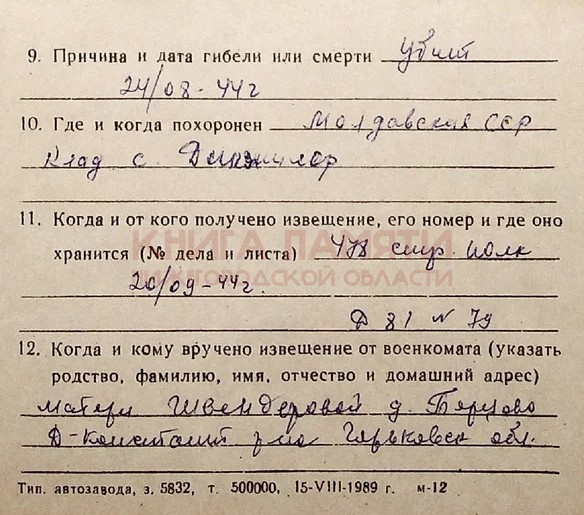 9. Причина и дата гибели или смерти убит
24/08-44г
10. Где и когда похоронен Молдавская ССР
Клад с.
11. Когда и от кого получено извещение, его номер и где оно
КНИГА ПАМЯТИ
хранится (№ дела и листа) 478 стр. полк
НИЖЕГОРОДСКОЙ ОБЛАСТИ
20/09-44г.
Д 81 N 79
12. Когда и кому вручено извещение от военкомата (указать
родство, фамилию, имя, отчество и домашний адрес)
матери Швендеровой д.
Д-Констант р-на Горьковск обл.
Тип. автозавода, з. 5832, т. 500000, 15-VIII-1989 г. м-12